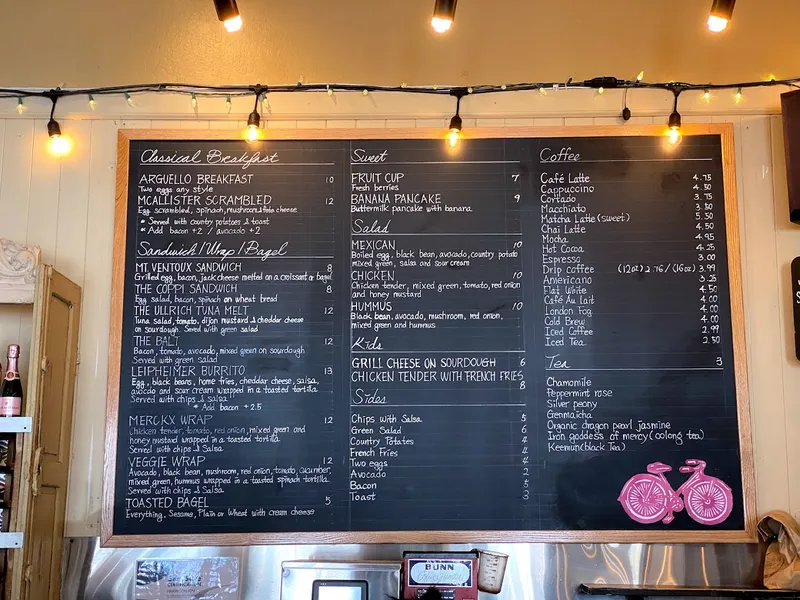 Classical Breakfast
ARGUELLO BREAKFAST 10
Two eggs any style
MCALLISTER SCRAMBLED 12
Egg scrambled, spinach, mushroom & feta cheese
* Served with country potatoes & toast
* Add bacon +2 / avocado +2
Sandwich/Wrap/Bagel
MT VENTOUX SANDWICH 8
Grilled egg, bacon, jack cheese melted on a croissant or bagel
THE COPPI SANDWICH 8
Egg salad, bacon, spinach on wheat bread
THE ULLRICH TUNA MELT 12
Tuna salad, tomato, dijon mustard & cheddar cheese
on sourdough. Served with green salad
THE BALT 12
Bacon, tomato, avocado, mixed green on sourdough
Served with green salad
LEIPHEIMER BURRITO 13
Egg, black beans, home fries, cheddar cheese, salsa,
avocado and sour cream wrapped in a toasted tortilla
Served with chips & salsa
* Add bacon +2.5
MERCKX WRAP 12
Chicken tender, tomato, red onion, mixed green and
honey mustard wrapped in a toasted tortilla
Served with chips & Salsa
VEGGIE WRAP 12
Avocado, black bean, mushroom, red onion, tomato, cucumber,
mixed green, hummus wrapped in a toasted spinach tortilla
Served with chips & Salsa
TOASTED BAGEL 5
Everything, Sesame, Plain or Wheat with cream cheese
Sweet
FRUIT CUP 7
Fresh berries
BANANA PANCAKE 9
Buttermilk pancake with banana
Salad
MEXICAN 10
Boiled egg, black bean, avocado, country potato
mixed green, salsa and sour cream
CHICKEN 10
Chicken tender, mixed green, tomato, red onion
and honey mustard
HUMMUS 10
Black bean, avocado, mushroom, red onion,
mixed green and hummus
Kids
GRILL CHEESE ON SOURDOUGH 6
CHICKEN TENDER WITH FRENCH FRIES
8
Sides
Chips with Salsa 5
Green Salad 6
Country Potates 4
French Fries 4
Two eggs 4
Avocado 2
Bacon 5
Toast 3
Coffee
Café Latte 4.75
Cappuccino 4.50
Cortado 3.75
Macchiato 3.50
Matcha Latte (sweet) 5.50
Chai Latte 4.50
Mocha 4.95
Hot Cocoa 4.25
Espresso 3.00
Drip coffee (12oz) 2.76 / (16oz) 3.99
Americano 3.25
Flat White 4.50
Café Au Lait 4.00
London Fog 4.00
Cold Brew 4.00
Iced Coffee 2.99
Iced Tea 2.50
Tea 3
Chamomile
Peppermint rose
Silver peony
Genmaicha
Organic dragon pearl jasmine
Iron goddess of mercy (oolong tea)
Keemun (black Tea)
BUNN